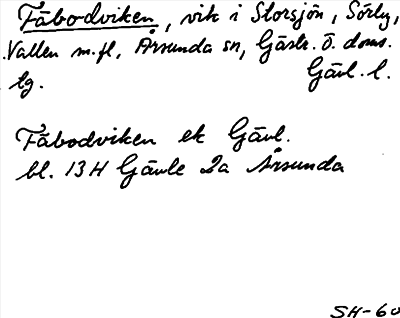 Fäbodviken, vik i Storsjön, Sörby,
Vallen m.fl, Årsunda sn, Gästr. Ö. doms.
lg. Gävl. l.
Fäbodviken ek Gävl.
bl. 13H Gävle 2a Årsunda
SH-60